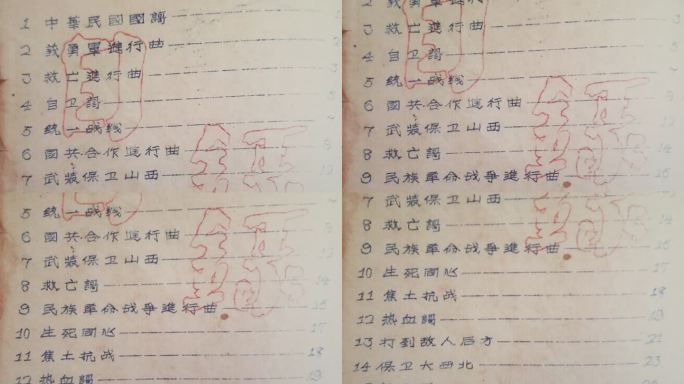 1 中華民國國謌
2 義勇軍進行曲 2
3 救亡進行曲 3
4 自卫謌
5 統一战线
6 國共合作進行曲 8
7 武装保卫山西 12
義勇軍進行
3 救亡進行曲 3
4 自卫謌
5 統一战线
6 國共合作進行曲 8
7 武装保卫山西
8 救亡謌 14
9 民族革命战爭進行曲 15
5 統一战线
6 國共合作進行曲
7 武装保卫山西 12
8 救亡謌 14
9 民族革命战爭進行曲 15
10 生死同心 17
11 焦土抗战 18
12 热血謌 19
7 武装保卫山西
8 救亡謌 14
9 民族革命战爭進行曲 15
10 生死同心 17
11 焦土抗战 18
12 热血謌 19
13 打到敌人后方 21
14 保卫大西北 23